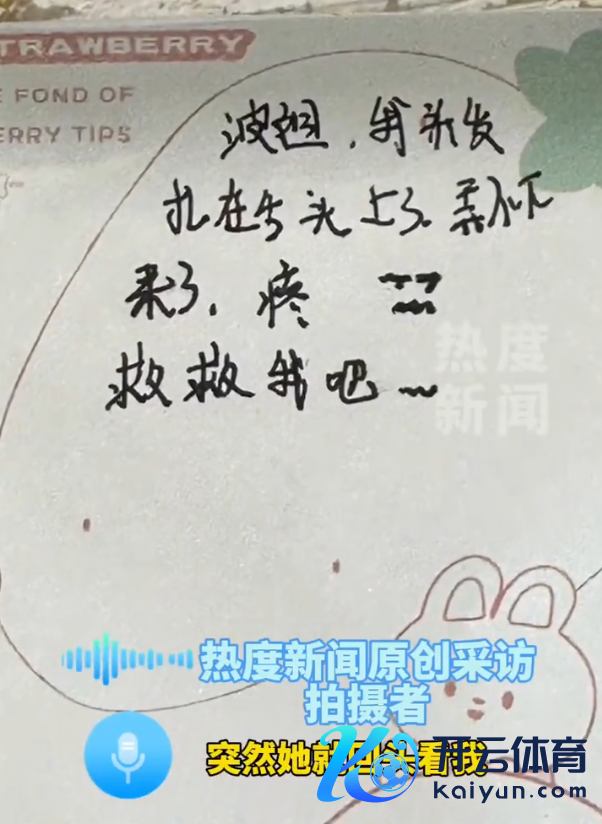 TRAWBERRY
E FOND OF
ERRY TIPS
我头发
扎在 头上了.弄不下
来了.疼
救救我吧~
热度
新闻
热度新闻原创采访
拍摄者
突然她就回头看我
开云体育
kaiyun.com